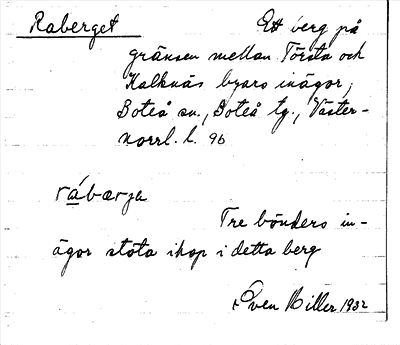 Raberget
Ett berg på
gränsen mellan Törsta och
Kalknäs byars inägor,
Boteå sn., Boteå tg., Väster-
norrl. l. 96
rábærje
Tre bönders in-
ägor stöta ihop i detta berg
Sven Hiller 1932